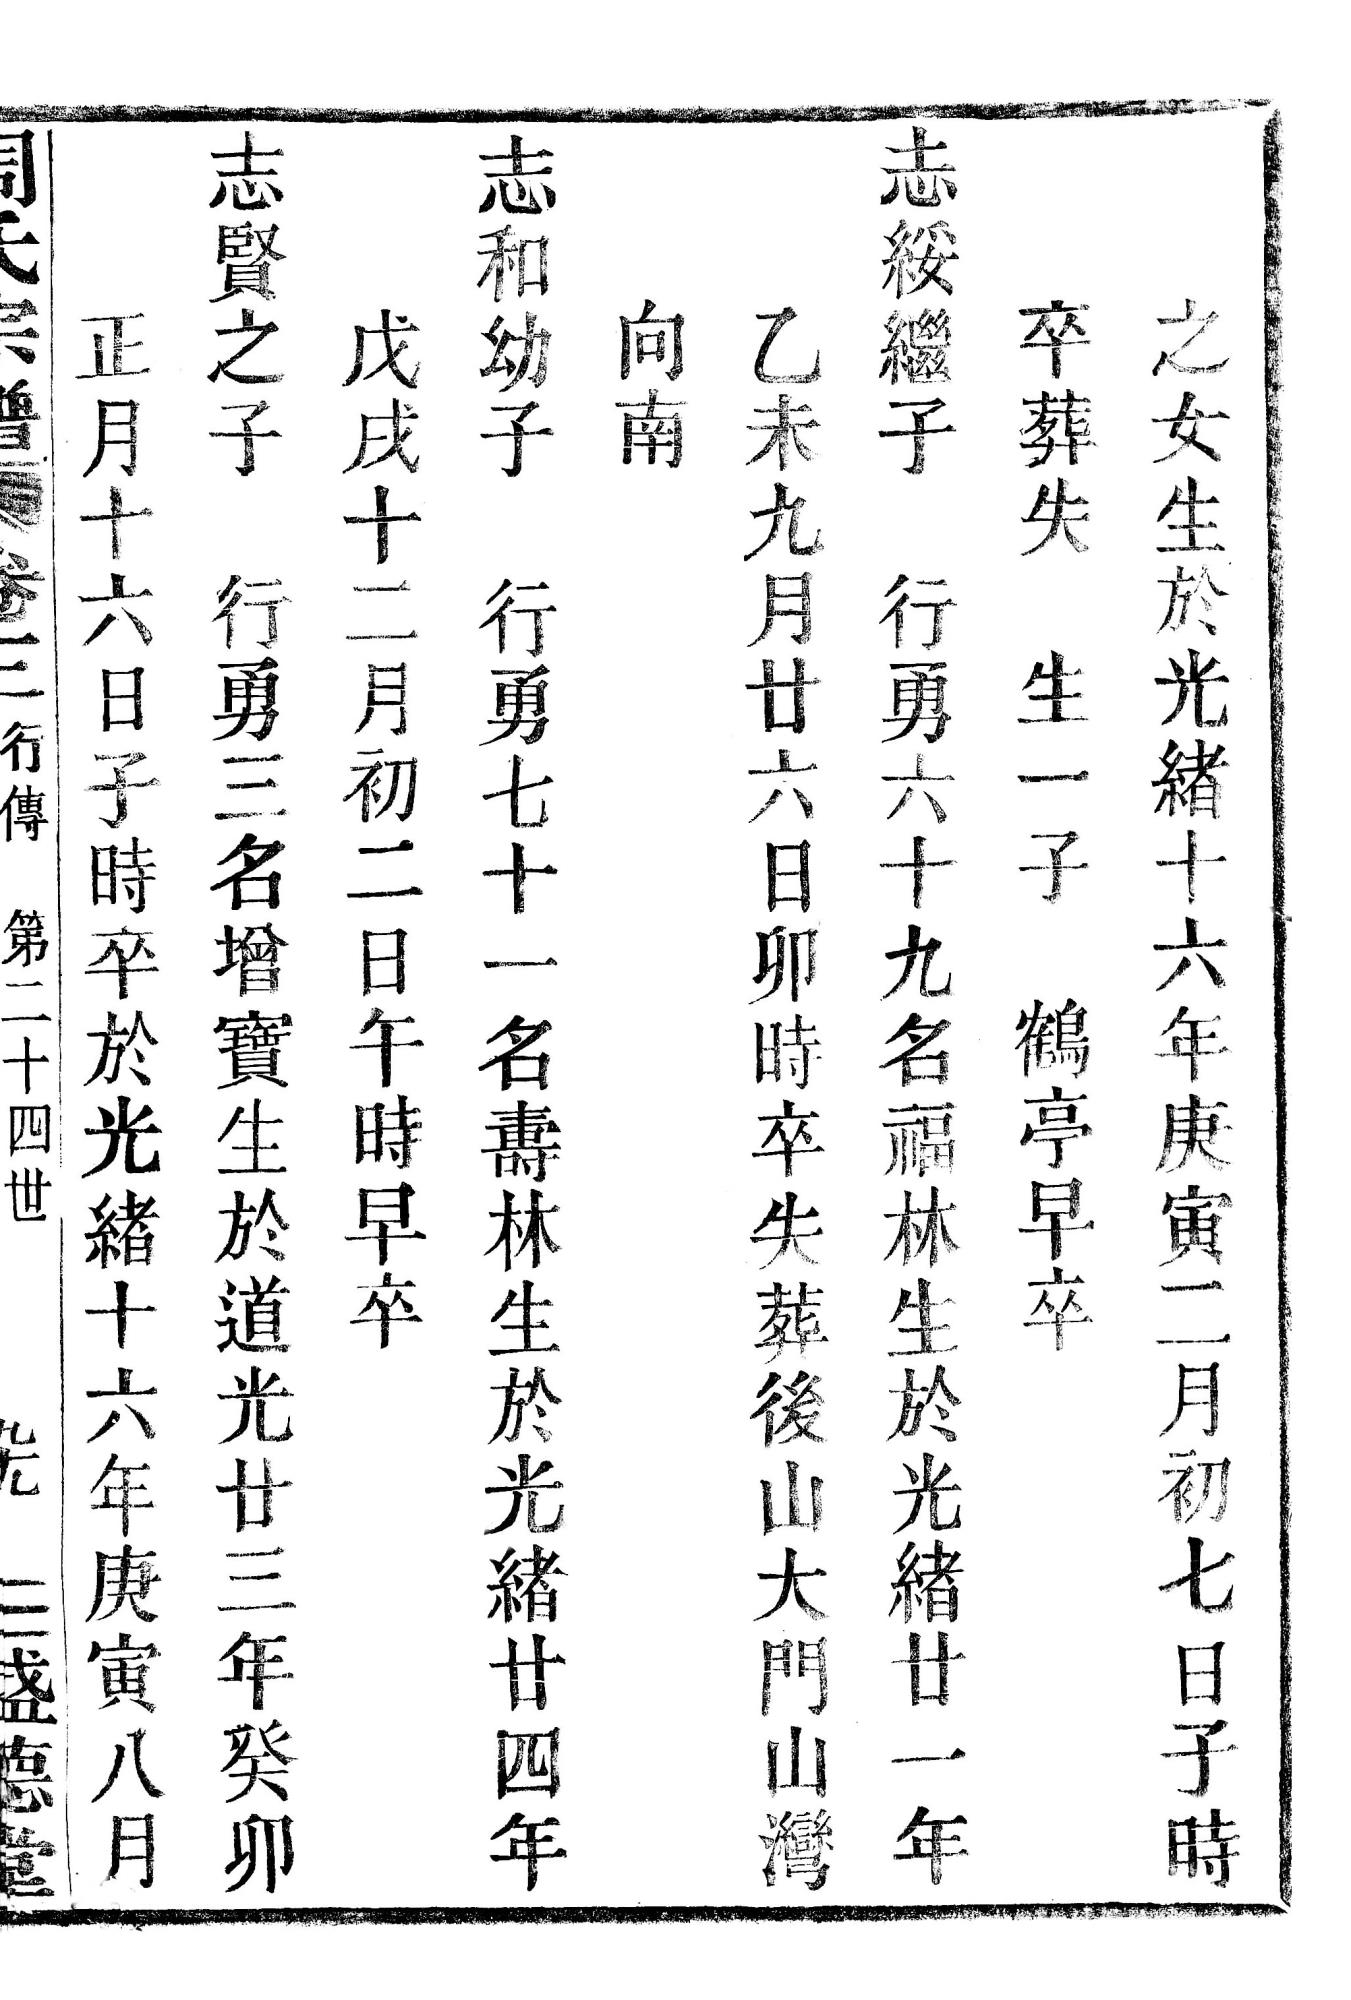 之女生於光緒十六年庚寅二月初七日子時
卒葬失　生一子　鶴亭早卒
志綏繼子　行勇六十九名福林生於光緒廿一年
乙未九月廿六日卯時卒失葬後山大門山灣
向南
志和幼子　行勇七十一名壽林生於光緒廿四年
戊戌十二月初二日午時早卒
志賢之子　行勇三名增寶生於道光廿三年癸卯
正月十六日子時卒於光緒十六年庚寅八月
周氏宗譜　卷三　行傳　第二十四世　三盛德堂